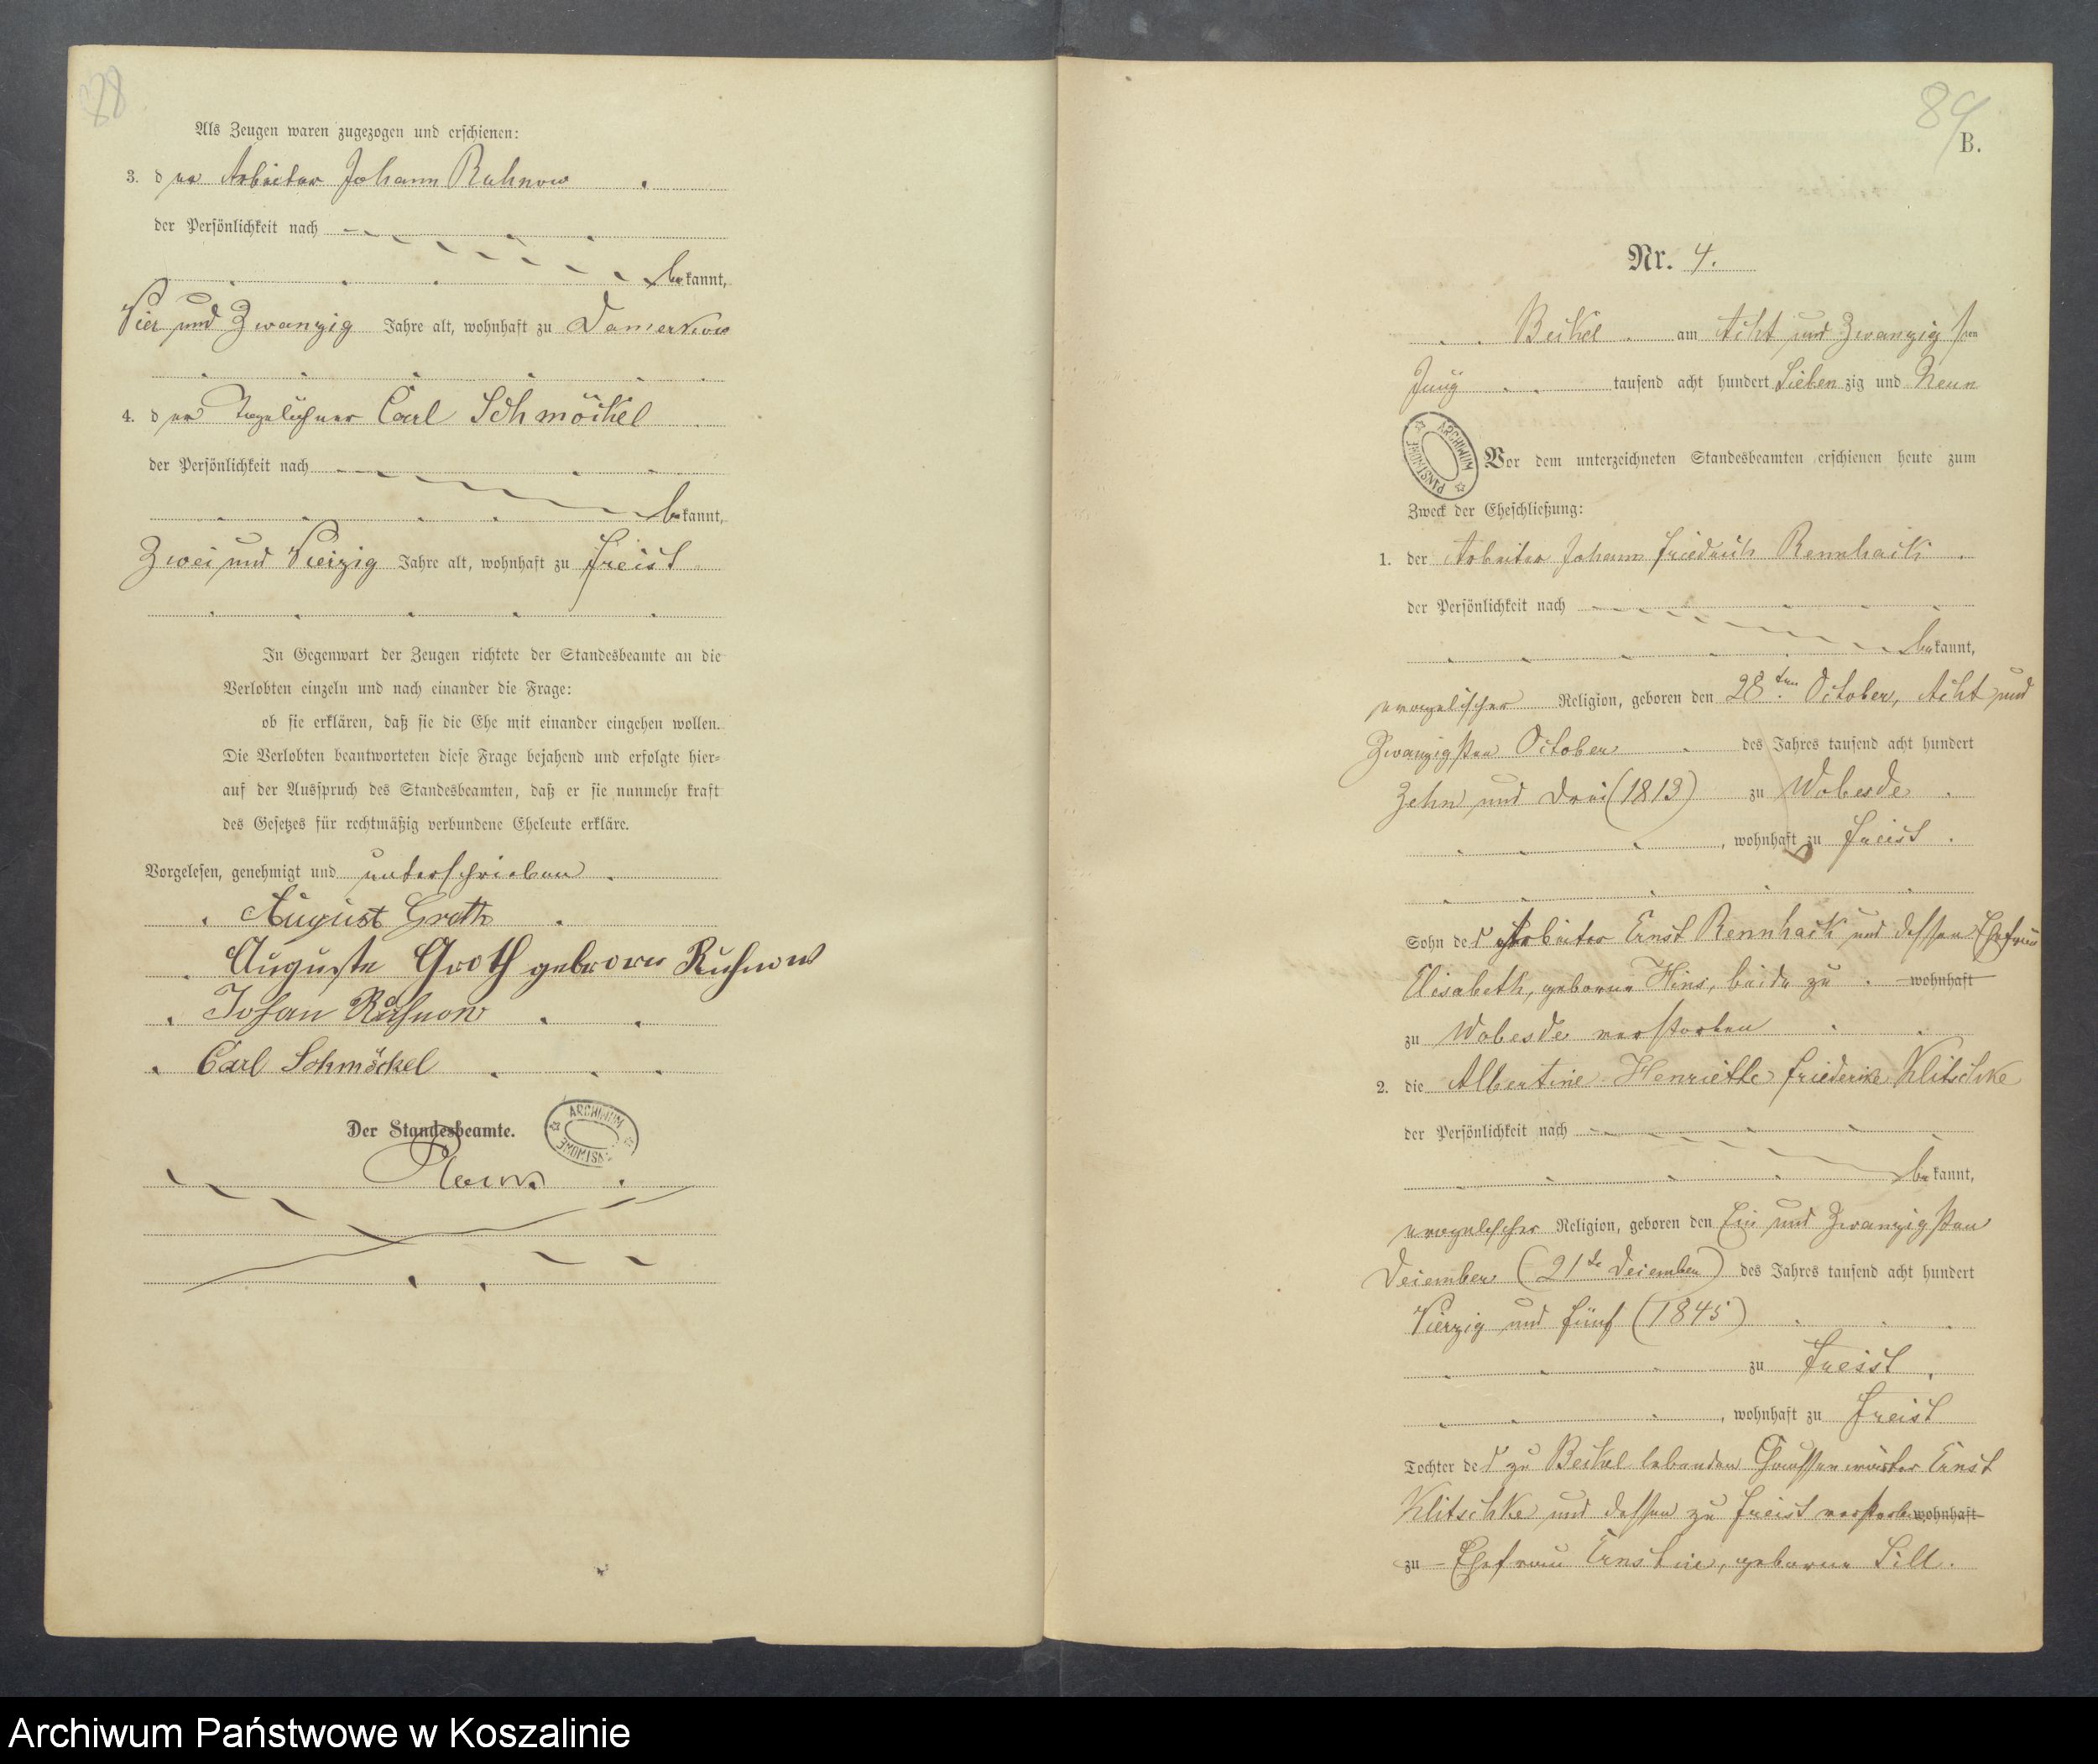 88
Als Zeugen waren zugezogen und erschienen:
3. der Arbeiter Johann Ruhnow
der Persönlichkeit nach
bekannt,
Vier und Zwanzig Jahre alt, wohnhaft zu Damerkow
4. der Tagelöhner Carl Schmöckel
der Persönlichkeit nach
bekannt,
Zwei und Vierzig Jahre alt, wohnhaft zu Freist
In Gegenwart der Zeugen richtete der Standesbeamte an die
Verlobten einzeln und nach einander die Frage:
ob sie erklären, daß sie die Ehe mit einander eingehen wollen.
Die Verlobten beantworteten diese Frage bejahend und erfolgte hier-
auf der Ausspruch des Standesbeamten, daß er sie nunmehr kraft
des Gesetzes für rechtmäßig verbundene Eheleute erkläre.
Vorgelesen, genehmigt und unterschrieben.
August Groth
Auguste Groth geborne Ruhnow
Johan Ruhnow
Carl Schmöckel
Der Standesbeamte.
ARCHIWUM
89
B.
Nr. 4.
Beckel am Acht und Zwanzigsten
Juny tausend acht hundert Siebenzig und Neun
ARCHIWUM PAŃSTWOWE
Vor dem unterzeichneten Standesbeamten erschienen heute zum
Zweck der Eheschließung:
1. der Arbeiter Johann Friedrich Rennhack
der Persönlichkeit nach
bekannt,
evangelischer Religion, geboren den 28ten October, Acht und
Zwanzigsten October des Jahres tausend acht hundert
Zehn und Drei (1813) zu Wobesde
, wohnhaft zu Freist.
Sohn des Arbeiter Ernst Rennhack und dessen Ehefrau
Elisabeth, geborne Hins, beide zu wohnhaft
zu Wobesde verstorben
2. die Albertine Henriette Friederike Klitschke
der Persönlichkeit nach
bekannt,
evangelischer Religion, geboren den Ein und Zwanzigsten
December (21te December) des Jahres tausend acht hundert
Vierzig und fünf (1845)
zu Freist
, wohnhaft zu Freist
Tochter des zu Beckel lebenden Chausseewärter Ernst
Klitschke und dessen zu Freist verstorben wohnhaft
zu Ehefrau Ernstine, geborne Sill.
Archiwum Państwowe w Koszalinie